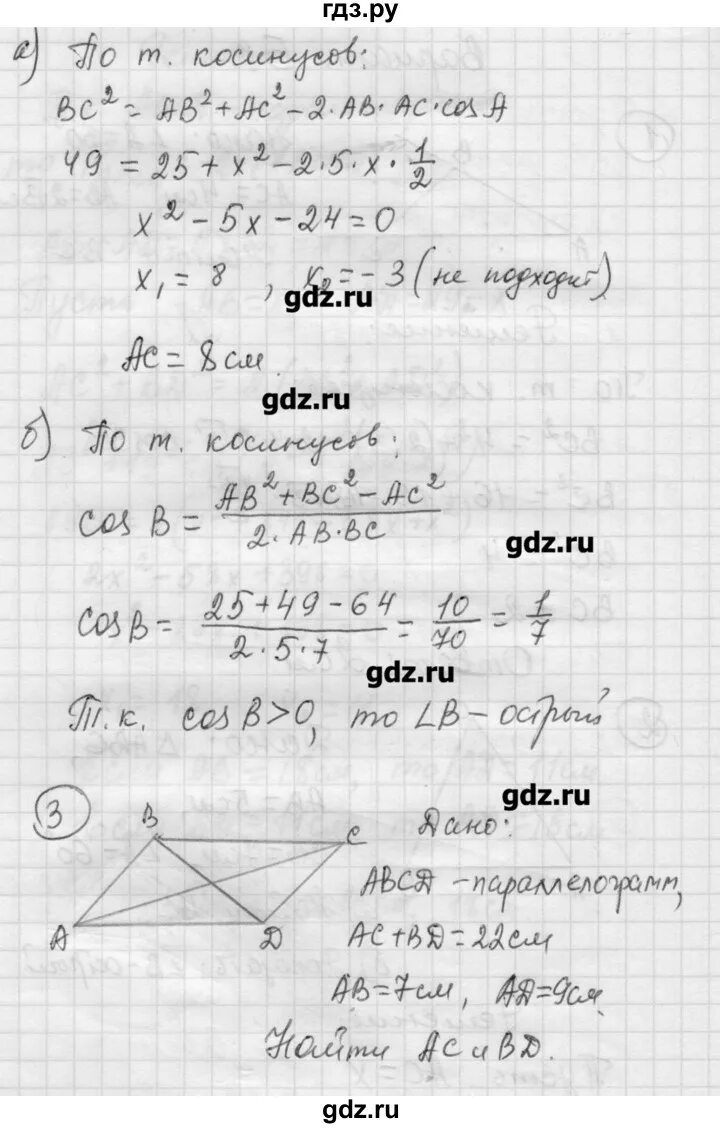 гдз.ру
а) По т. косинусов:
BC² = AB² + AC² − 2·AB·AC·cos A
49 = 25 + x² − 2·5·x·1/2
x² − 5x − 24 = 0
x₁ = 8 , x₂ = −3 (не подходит)
gdz.ru
AC = 8 см.
gdz.ru
б) По т. косинусов:
cos B = (AB² + BC² − AC²)/(2·AB·BC)
gdz.ru
cos B = (25 + 49 − 64)/(2·5·7) = 10/70 = 1/7
gdz.ru
Т.к. cos B > 0, то ∠B − острый
gdz.ru
3 B C A D
Дано:
ABCD − параллелограмм,
AC + BD = 22 см
AB = 7 см, AD = 9 см.
Найти AC и BD.
gdz.ru
gdz.ru